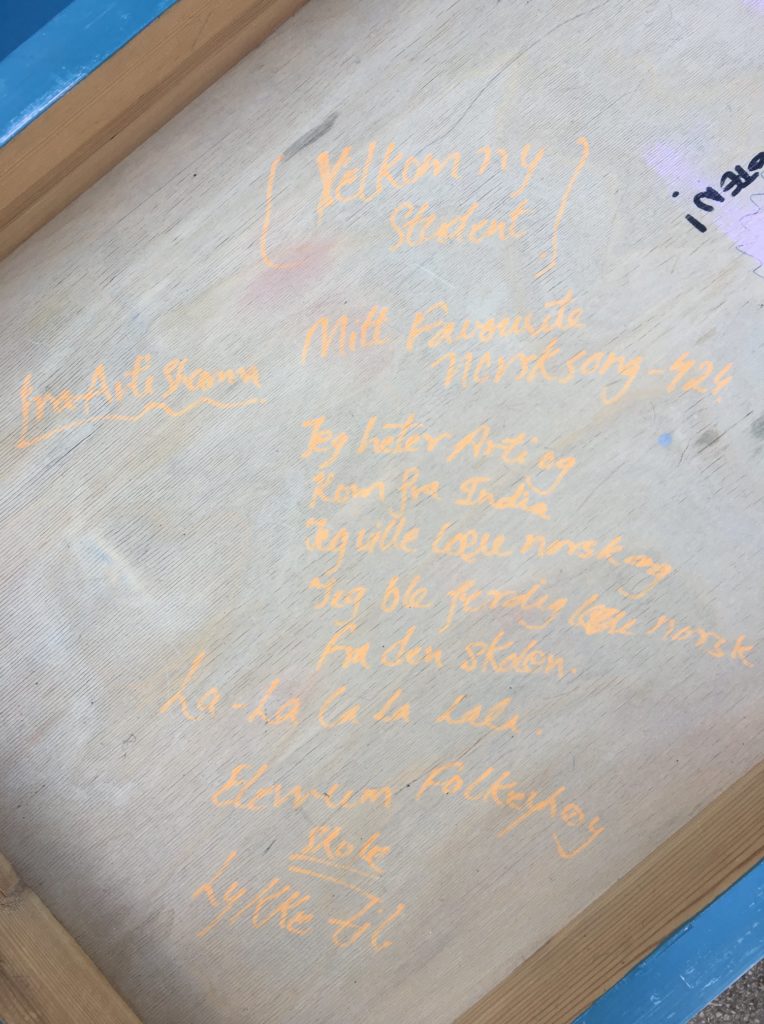 [Velkom ny
Student]
Mitt Favourite
norsksong - 424
fra Arti Sharma
Jeg heter Arti og
Kom fra India
Jeg ville lære norsk og
Jeg ble ferdig lære norsk
fra den skolen.
La-La La La Lala.
Elevrum Folkehøy
skole
Lykke til.